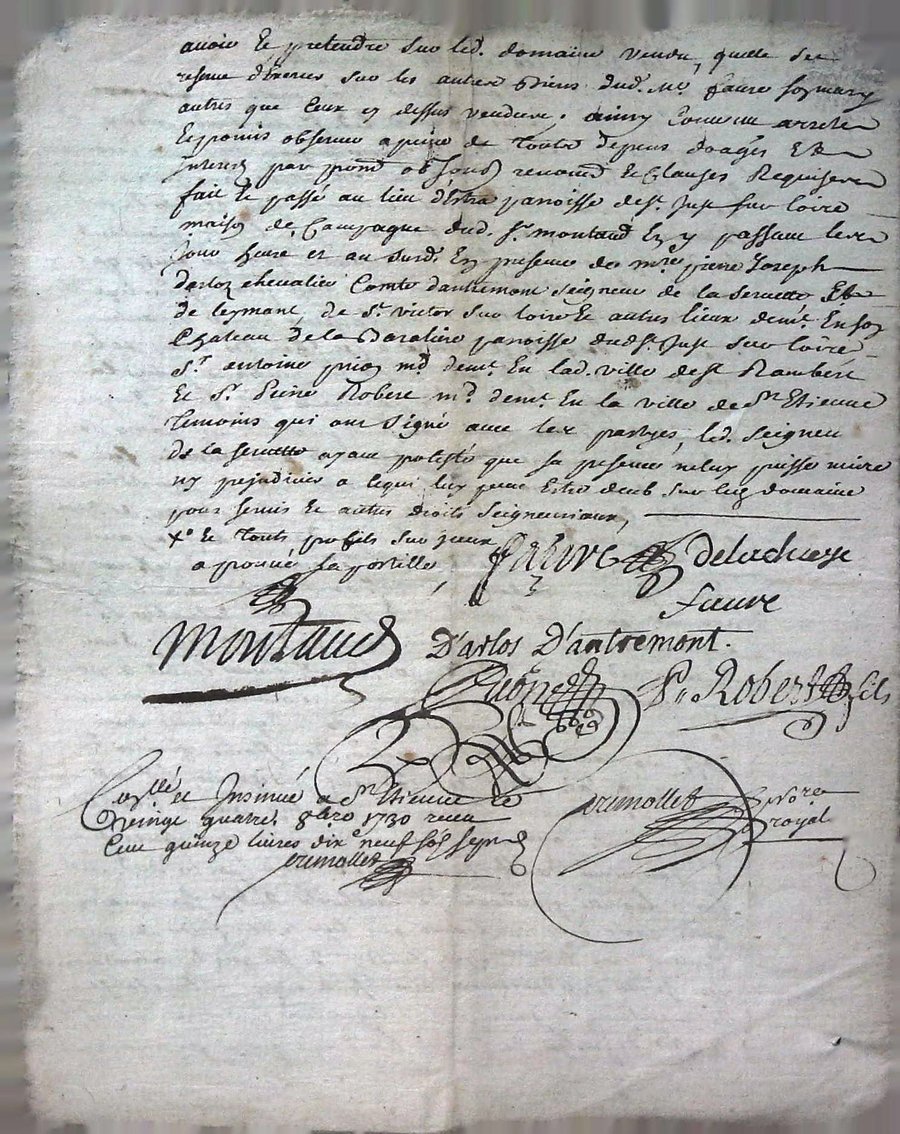 avoir et pretendre sur led. domaine vendu, quelle se
reserve d'exercer sur les autres biens dud. Me faure son mary
autres que ceux cy dessus vendues. ainsy convenu arreté
Et promis observer a peine de touts depens domages Et
Interests par promd obligaons renoncd Et Clauses Requises
fait Et passé au lieu d'Etra paroisse de st. Just sur loire
maison de Campagne dud. sr. montaud Ez y passant les
Jour heure et an susd. En presence de mre pierre Joseph
darloz chevalier Comte dantremont seigneur de la servette Et
de leymant, de st. victor sur loire Et autres lieux demt. En son
Chateau de la Baraliere paroisse dud st. Just sur loire
sr. antoine md demt. En lad. ville de st Rambert
Et sr. Robert md. demt. En la ville de st Etienne
temoins qui ont signé avec les partyes, led. seigneur
de la servette ayant protesté que sa presence ne luy puisse nuire
ny prejudicier a ce qui luy peut Estre deub sur led domaine
pour servis Et autres droits seigneuriaux,
Xo Et touts profits sur
aprouvé la postille,
faure Delachieze
faure
Montaud D'arlos D'antremont.
P. Robert fils
Collé et Insinué a St Etienne le
veingt quatre 8bre 1730 receu
Cent quinze livres dix neuf sols sept d
crimollet
crimollet
royal